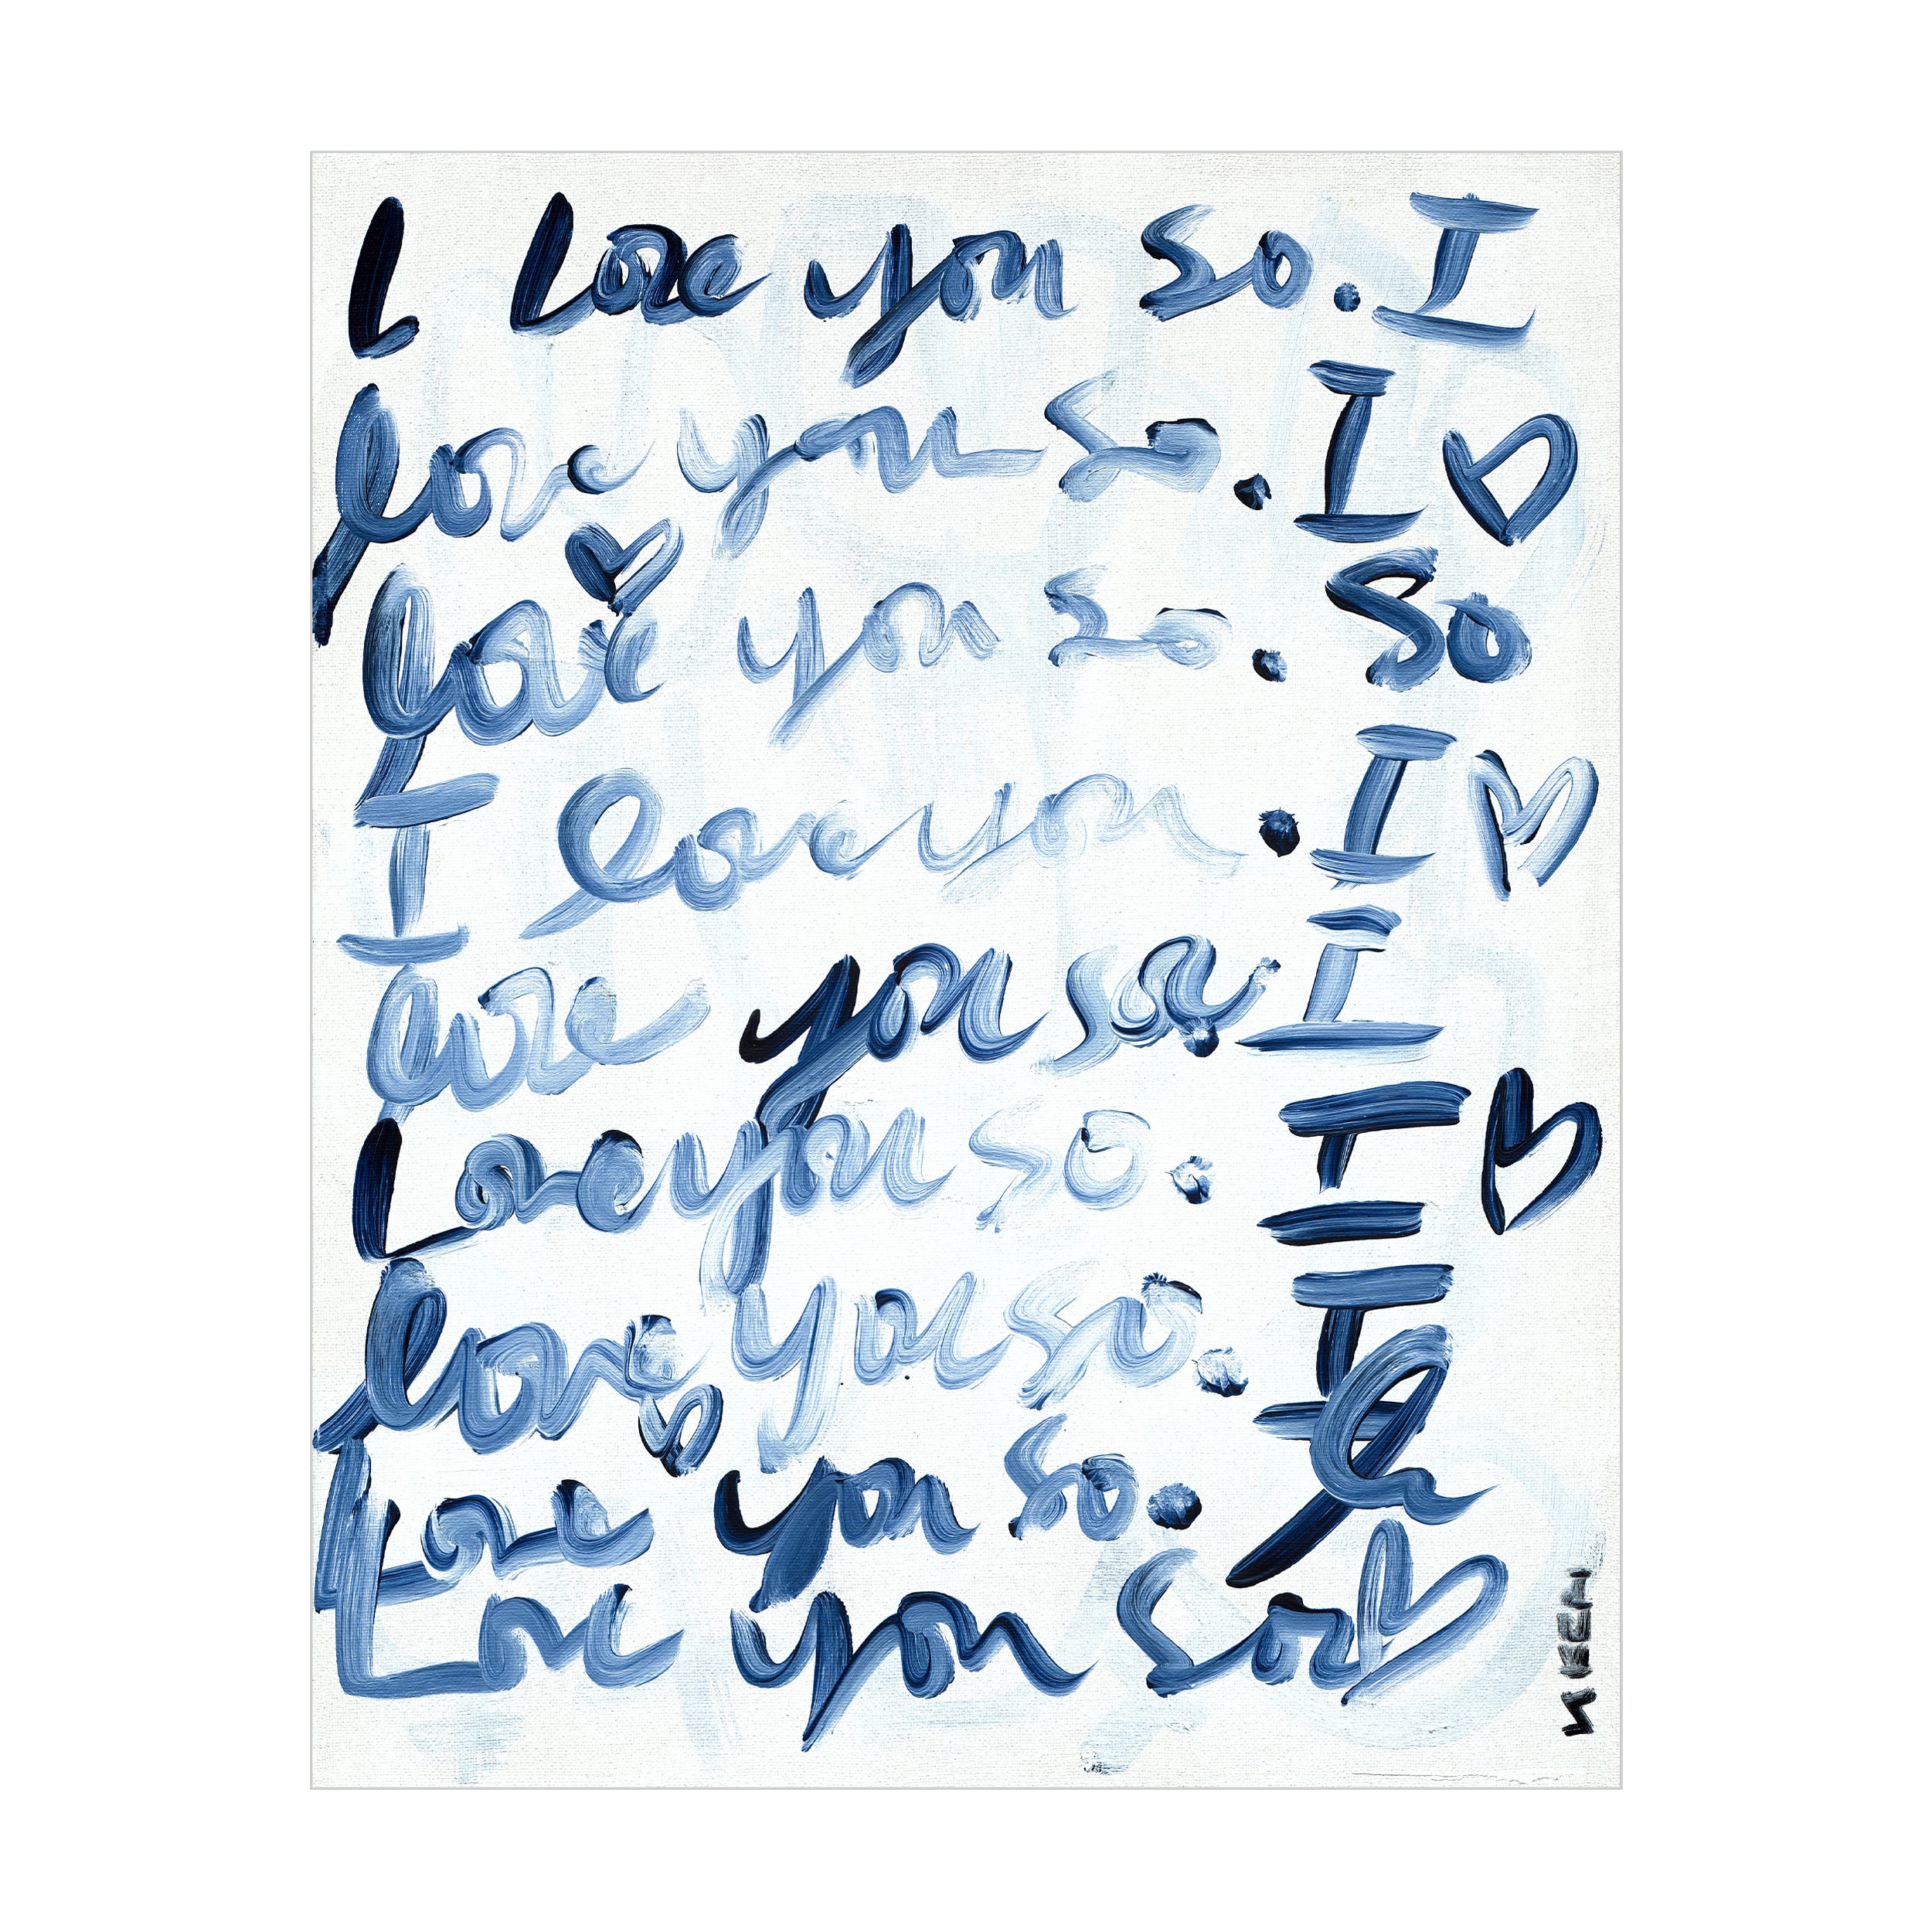 I Love you so. I
love you so. I ♡
love you so. so
I love you. I ♡
love you so. I
Love you so. I ♡
love you so. I
Love you so.
Love you so ♡